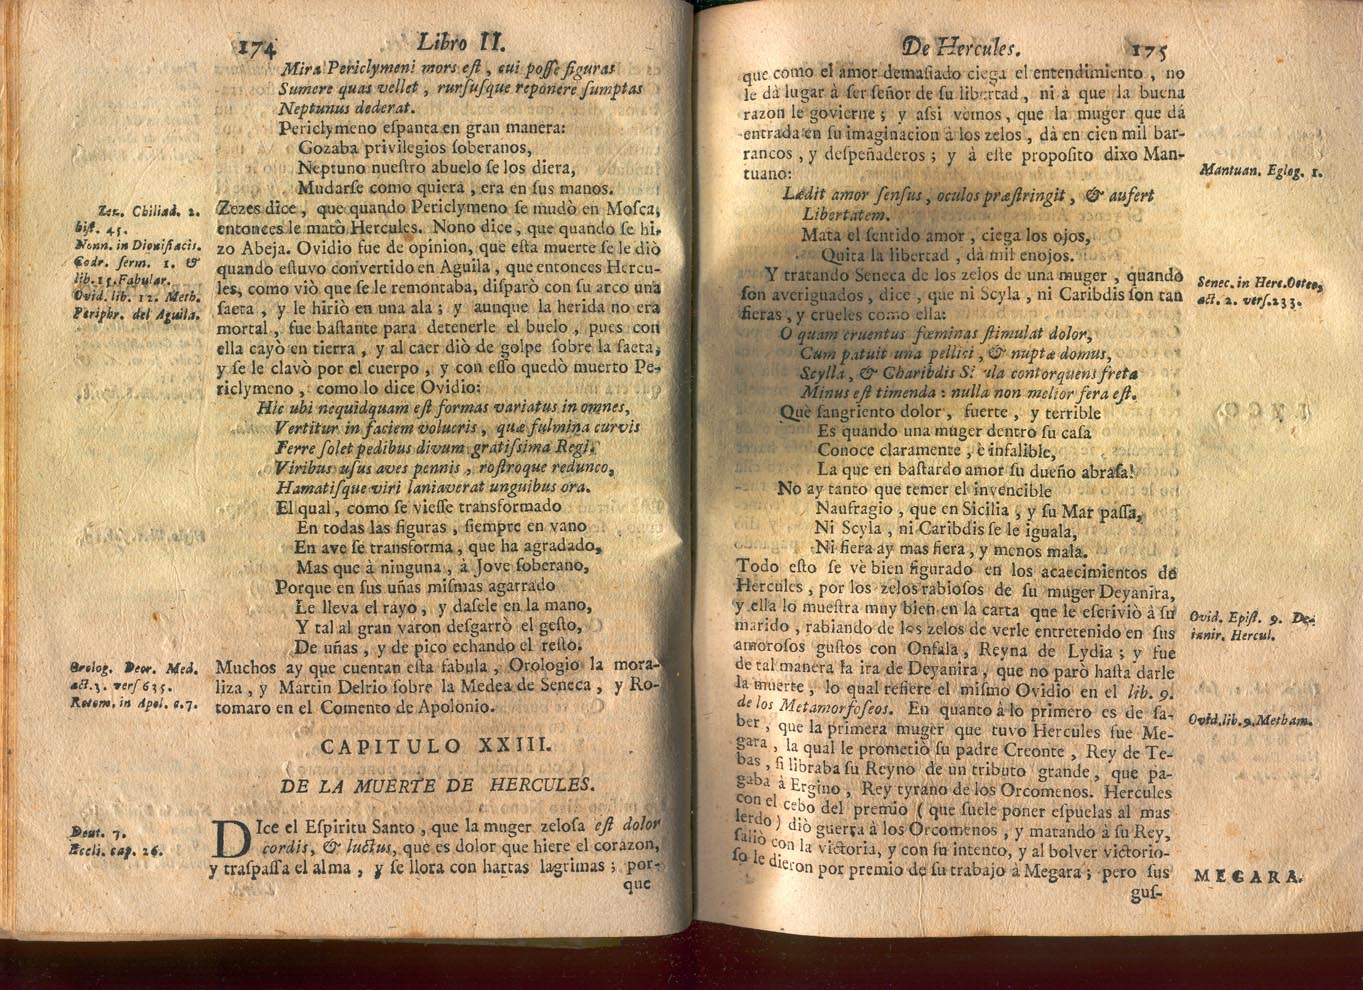 174 Libro II.
Mira Periclymeni mors eſt, cui poſſe figuras
Sumere quas vellet, rurſuſque reponere ſumptas
Neptunus dederat.
Periclymeno eſpanta en gran manera:
Gozaba privilegios ſoberanos,
Neptuno nueſtro abuelo ſe los diera,
Mudarſe como quiera, era en ſus manos.
Zezes dice, que quando Periclymeno ſe mudò en Moſca,
entonces le matò Hercules. Nono dice, que quando ſe hi-
zo Abeja. Ovidio fue de opinion, que eſta muerte ſe le diò
quando eſtuvo convertido en Aguila, que entonces Hercu-
les, como viò que ſe le remontaba, diſparò con ſu arco una
ſaeta, y le hiriò en una ala; y aunque la herida no era
mortal, fue baſtante para detenerle el buelo, pues con
ella cayò en tierra, y al caer diò de golpe ſobre la ſaeta,
y ſe le clavò por el cuerpo, y con eſſo quedò muerto Pe-
riclymeno, como lo dice Ovidio:
Hic ubi nequidquam eſt formas variatus in omnes,
Vertitur in faciem volucris, quæ fulmina curvis
Ferre ſolet pedibus divum gratiſsima Regi.
Viribus uſus aves pennis, roſtroque redunco,
Hamatiſque viri laniaverat unguibus ora.
El qual, como ſe vieſſe transformado
En todas las figuras, ſiempre en vano
En ave ſe transforma, que ha agradado,
Mas que à ninguna, à Jove ſoberano,
Porque en ſus uñas miſmas agarrado
Le lleva el rayo, y daſele en la mano,
Y tal al gran varon deſgarrò el geſto,
De uñas, y de pico echando el reſto.
Muchos ay que cuentan eſta fabula, Orologio la mora-
liza, y Martin Delrio ſobre la Medea de Seneca, y Ro-
tomaro en el Comento de Apolonio.
CAPITULO XXIII.
DE LA MUERTE DE HERCULES.
DIce el Eſpiritu Santo, que la muger zeloſa eſt dolor
cordis, & luctus, que es dolor que hiere el corazon,
y traſpaſſa el alma, y ſe llora con hartas lagrimas; por-
que
Zez. Chiliad. 2.
hiſt. 45.
Nonn. in Dioniſiacis.
Codr. ſerm. 1. &
lib. 15. Fabular.
Ovid. lib. 12. Meth.
Periphr. del Aguila.
Orolog. Deor. Med.
act. 3. verſ 635.
Rotom. in Apol. c. 7.
Deut. 7.
Eccli. cap. 26.
De Hercules. 175
que como el amor demaſiado ciega el entendimiento, no
le dà lugar à ſer ſeñor de ſu libertad, ni à que la buena
razon le govierne; y aſsi vemos, que la muger que dà
entrada en ſu imaginacion à los zelos, dà en cien mil bar-
rancos, y deſpeñaderos; y à eſte propoſito dixo Man-
tuano:
Lædit amor ſenſus, oculos præſtringit, & aufert
Libertatem.
Mata el ſentido amor, ciega los ojos,
Quita la libertad, dà mil enojos.
Y tratando Seneca de los zelos de una muger, quando
ſon averiguados, dice, que ni Scyla, ni Caribdis ſon tan
fieras, y crueles como ella:
O quam cruentus fœminas ſtimulat dolor,
Cum patuit una pellici, & nuptæ domus,
Scylla, & Charibdis Si ula contorquens freta
Minus eſt timenda: nulla non melior fera eſt.
Què ſangriento dolor, fuerte, y terrible
Es quando una muger dentro ſu caſa
Conoce claramente, è infalible,
La que en baſtardo amor ſu dueño abraſa!
No ay tanto que temer el invencible
Naufragio, que en Sicilia, y ſu Mar paſſa,
Ni Scyla, ni Caribdis ſe le iguala,
Ni fiera ay mas fiera, y menos mala.
Todo eſto ſe vè bien figurado en los acaecimientos de
Hercules, por los zelos rabioſos de ſu muger Deyanira,
y ella lo mueſtra muy bien en la carta que le eſcriviò à ſu
marido, rabiando de los zelos de verle entretenido en ſus
amoroſos guſtos con Onfala, Reyna de Lydia; y fue
de tal manera la ira de Deyanira, que no parò haſta darle
la muerte, lo qual refiere el miſmo Ovidio en el lib. 9.
de los Metamorfoſeos. En quanto à lo primero es de ſa-
ber, que la primera muger que tuvo Hercules fue Me-
gara, la qual le prometiò ſu padre Creonte, Rey de Te-
bas, ſi libraba ſu Reyno de un tributo grande, que pa-
gaba à Ergino, Rey tyrano de los Orcomenos. Hercules
con el cebo del premio (que ſuele poner eſpuelas al mas
lerdo) diò guerra à los Orcomenos, y matando à ſu Rey,
ſaliò con la victoria, y con ſu intento, y al bolver victorio-
ſo le dieron por premio de ſu trabajo à Megara; pero ſus
guſ-
Mantuan. Eglog. 1.
Senec. in Herc. Oeteo,
act. 2. verſ. 233.
Ovid. Epiſt. 9. De-
ianir. Hercul.
Ovid. lib. 9. Metham.
MEGARA.